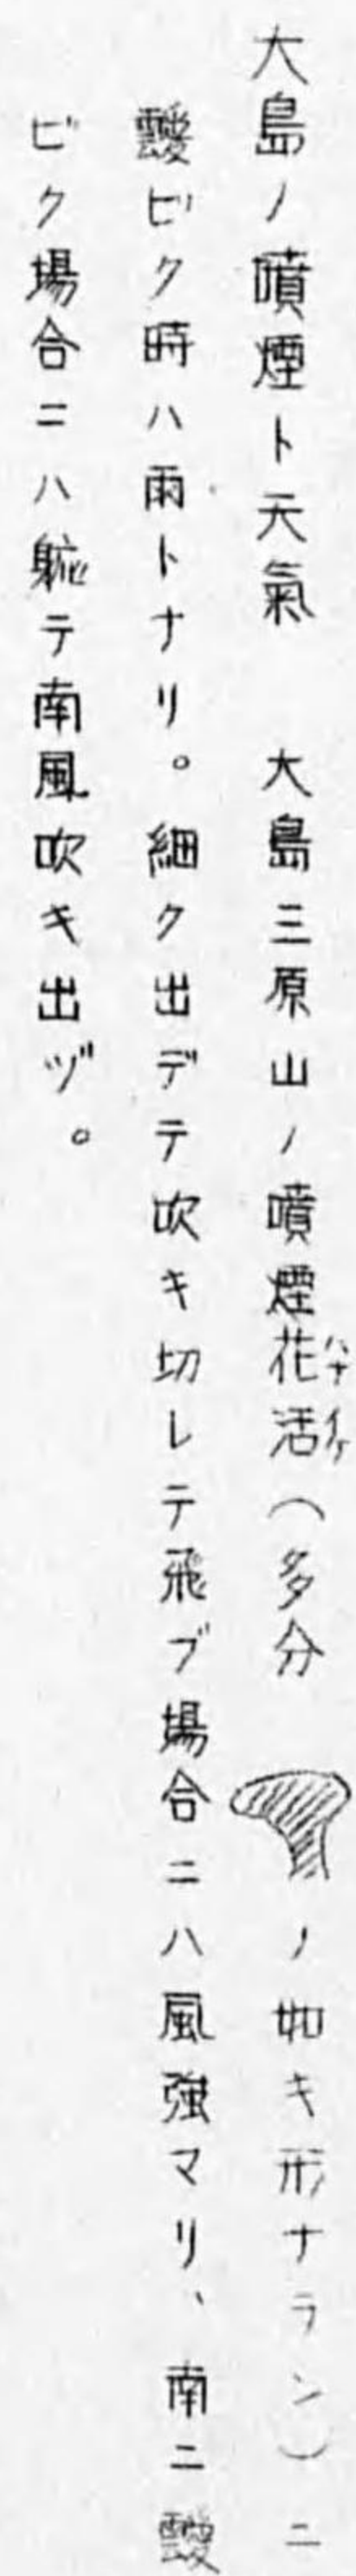 大島ノ噴煙ト天氣　大島三原山ノ噴煙花活（多分　ノ如キ形ナラン）ニ
ハナイケ
靉ビク時ハ雨トナリ。細ク出デテ吹キ切レテ飛ブ場合ニハ風強マリ、南ニ靉
ビク場合ニハ軈テ南風吹キ出ヅ。